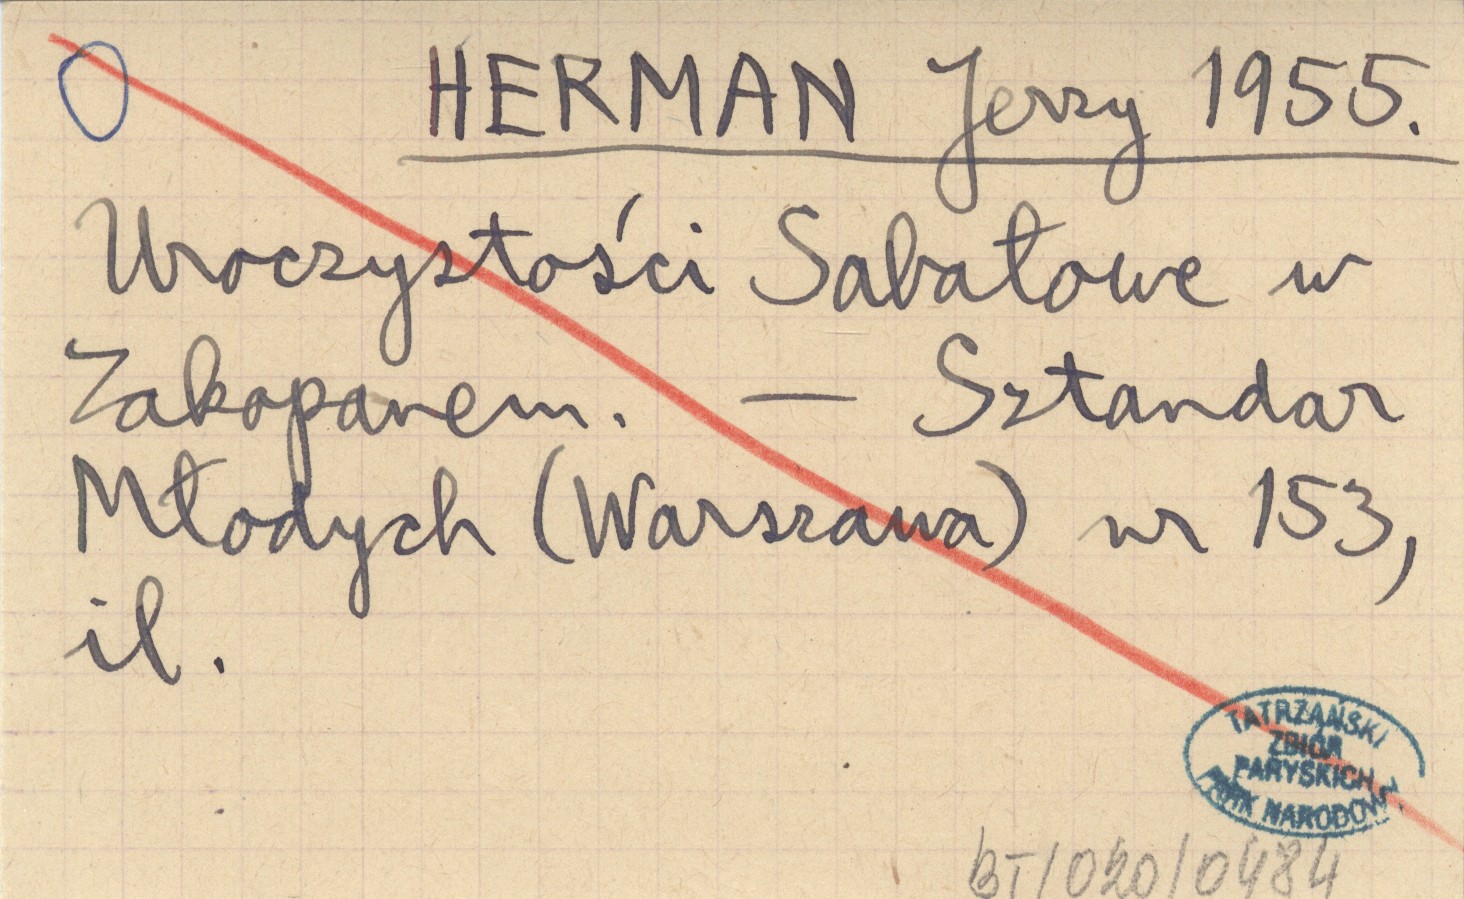 HERMAN Jerzy 1955.
Uroczystości Sabałowe w
Zakopanem. — Sztandar
Młodych (Warszawa) nr 153,
il.
TATRZAŃSKI
ZBIÓR
PARYSKICH
PARK NARODOWY
BT/020/0484